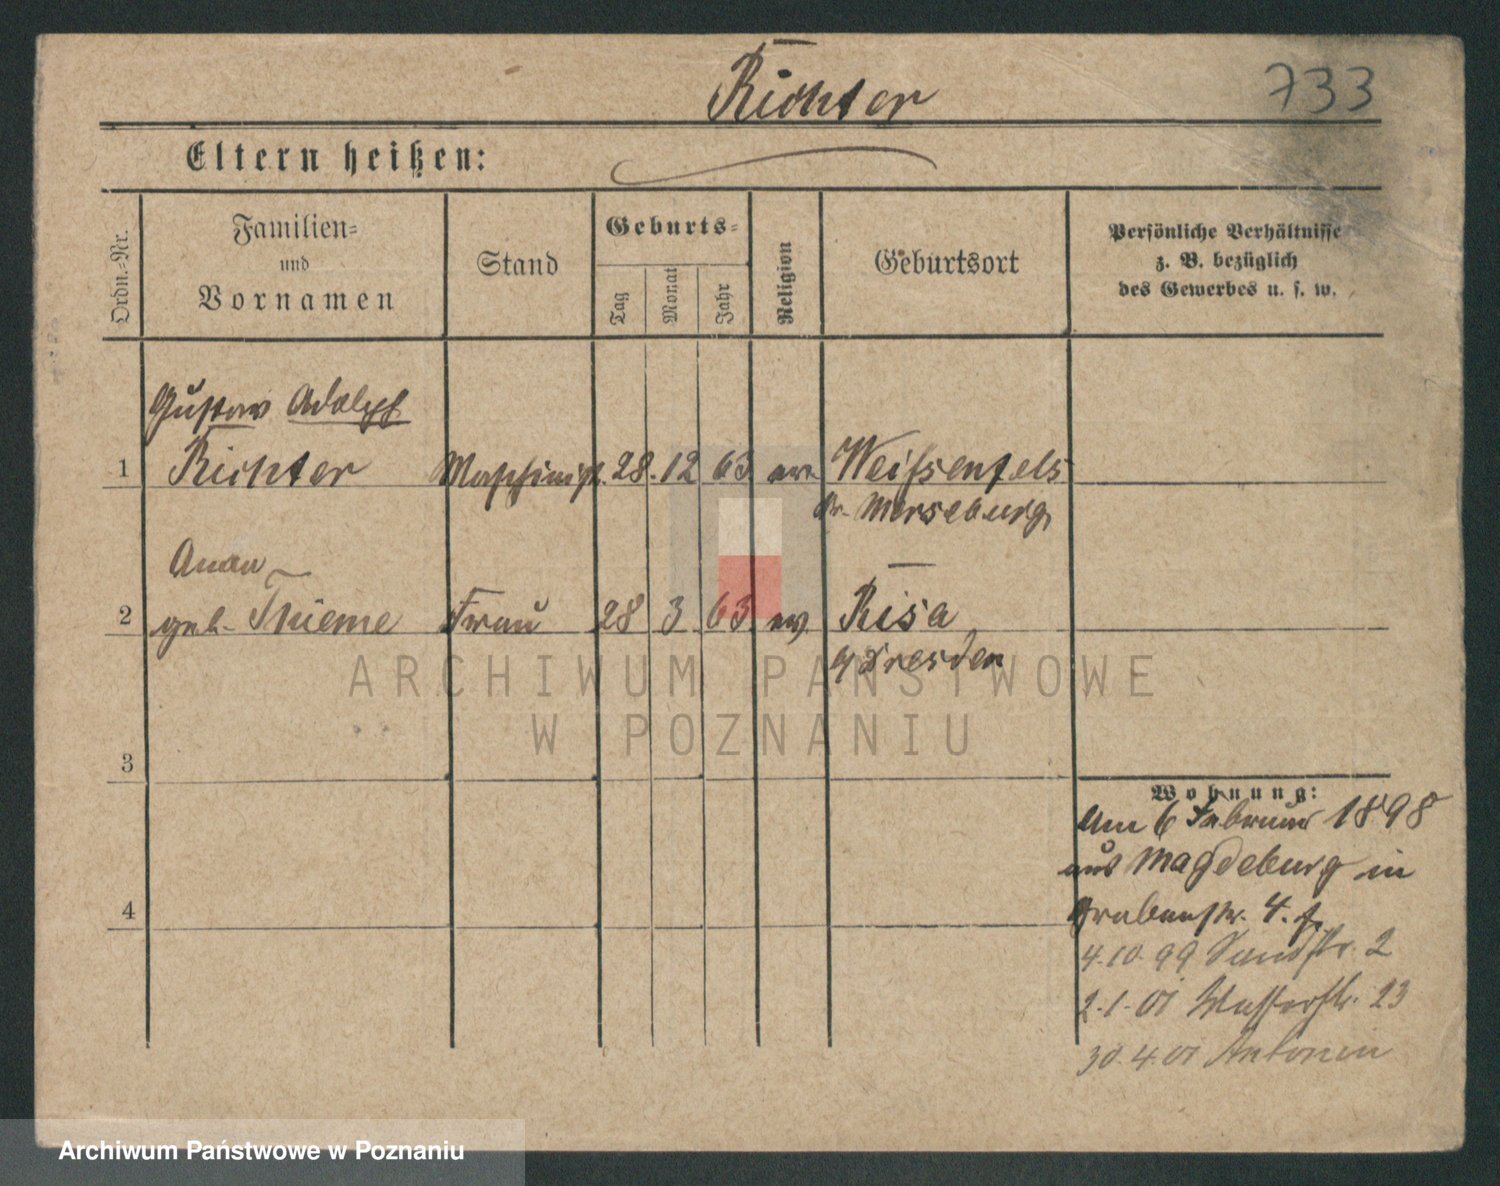 Richter
733
Eltern heißen:
Ordn.-Nr.
Familien-
und
Vornamen
Stand
Geburts-
Tag
Monat
Jahr
Religion
Geburtsort
Persönliche Verhältnisse
z. B. bezüglich
des Gewerbes u. s. w.
Gustav Adolph
1 Richter Maschinist. 28. 12 63 ev. Weißenfels
Kr. Merseburg
Anna
2 geb. Thieme Frau 28 3 63 ev. Risa
a/ Dresden
ARCHIWUM PAŃSTWOWE
W POZNANIU
3
Wohnung:
Am 6 Februar 1898
aus Magdeburg in
4 Grabenstr. 4.
4.10.99 Sandstr. 2
2.1.01 Wasserstr. 23
30.4.01 Antonin
Archiwum Państwowe w Poznaniu